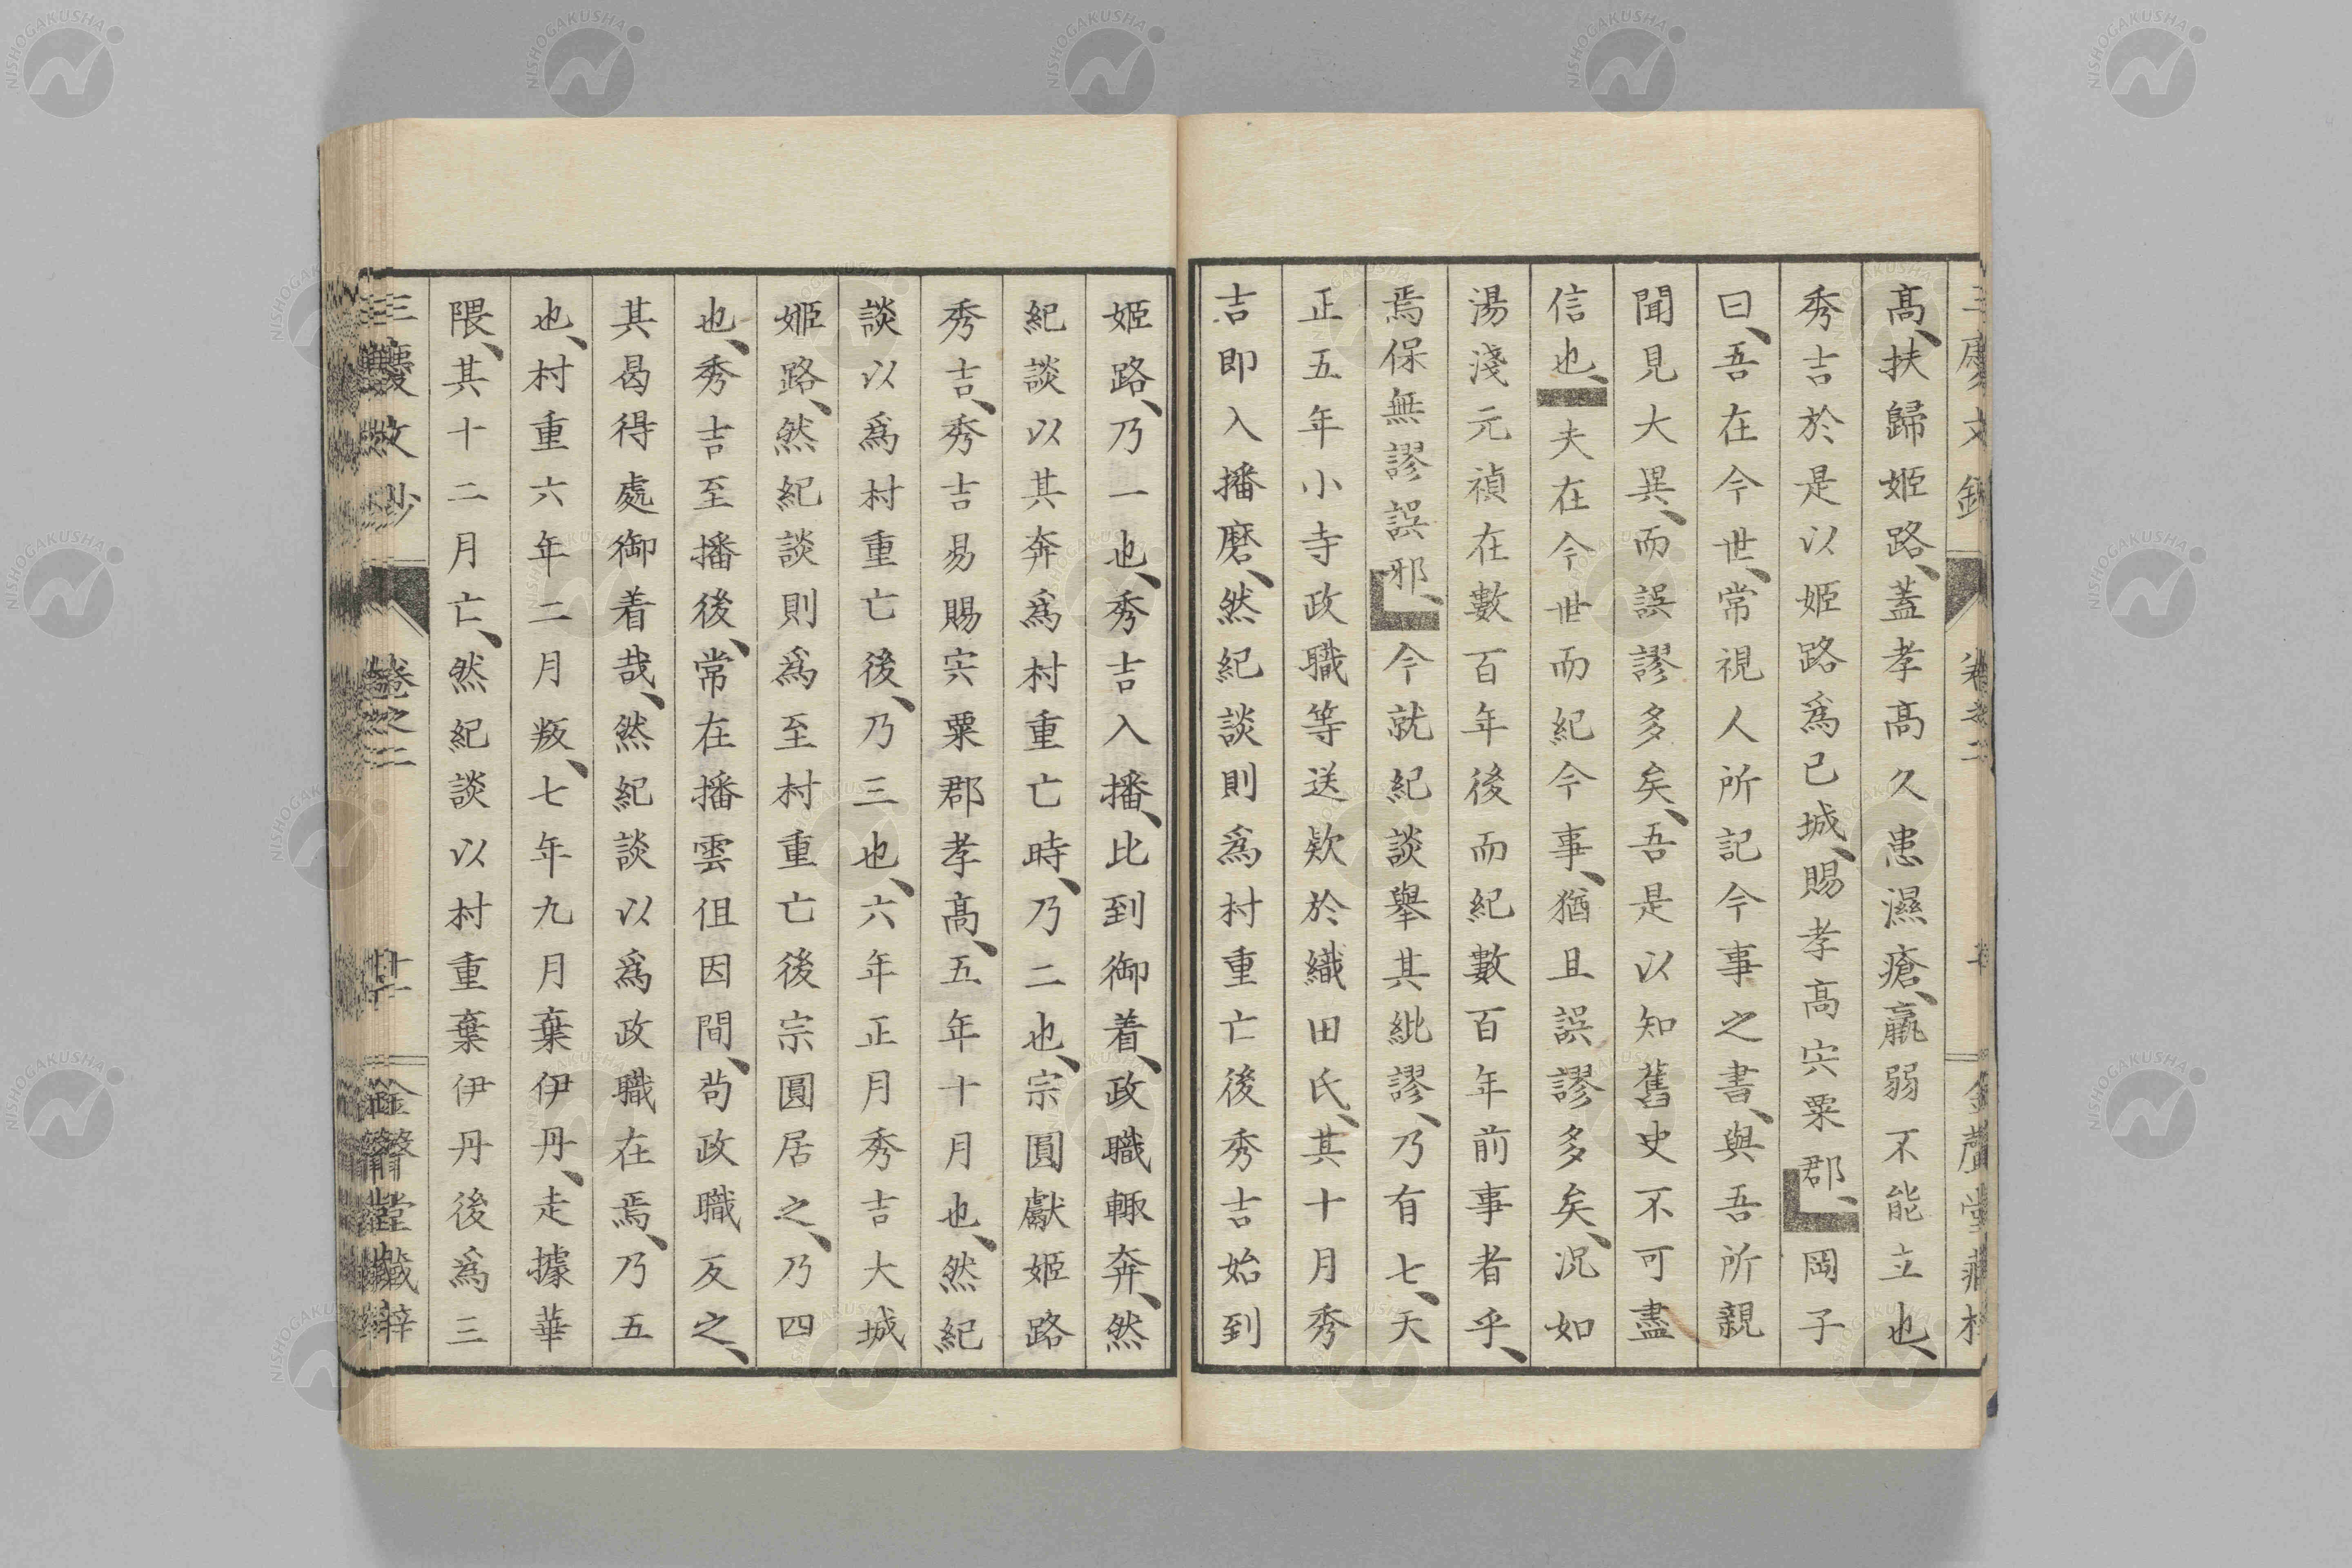 高、扶歸姬路、蓋孝高久患濕瘡、羸弱不能立也、
秀吉於是以姬路爲已城、賜孝高宍粟郡、岡子
曰、吾在今世、常視人所記今事之書、與吾所親
聞見大異、而誤謬多矣、吾是以知舊史不可盡
信也、夫在今世而紀今事、猶且誤謬多矣、況如
湯淺元禎在數百年後而紀數百年前事者乎、
焉保無謬誤邪、今就紀談舉其紕謬、乃有七、天
正五年小寺政職等送欵於織田氏、其十月秀
吉即入播磨、然紀談則爲村重亡後秀吉始到
姬路、乃一也、秀吉入播、比到御着、政職輙奔、然
紀談以其奔爲村重亡時、乃二也、宗圓獻姬路
秀吉、秀吉易賜宍粟郡孝高、五年十月也、然紀
談以爲村重亡後、乃三也、六年正月秀吉大城
姬路、然紀談則爲至村重亡後宗圓居之、乃四
也、秀吉至播後、常在播雲伹因間、茍政職反之、
其曷得處御着哉、然紀談以爲政職在焉、乃五
也、村重六年二月叛、七年九月棄伊丹、走據華
隈、其十二月亡、然紀談以村重棄伊丹後爲三
卷之二
NISHOGAKUSHA